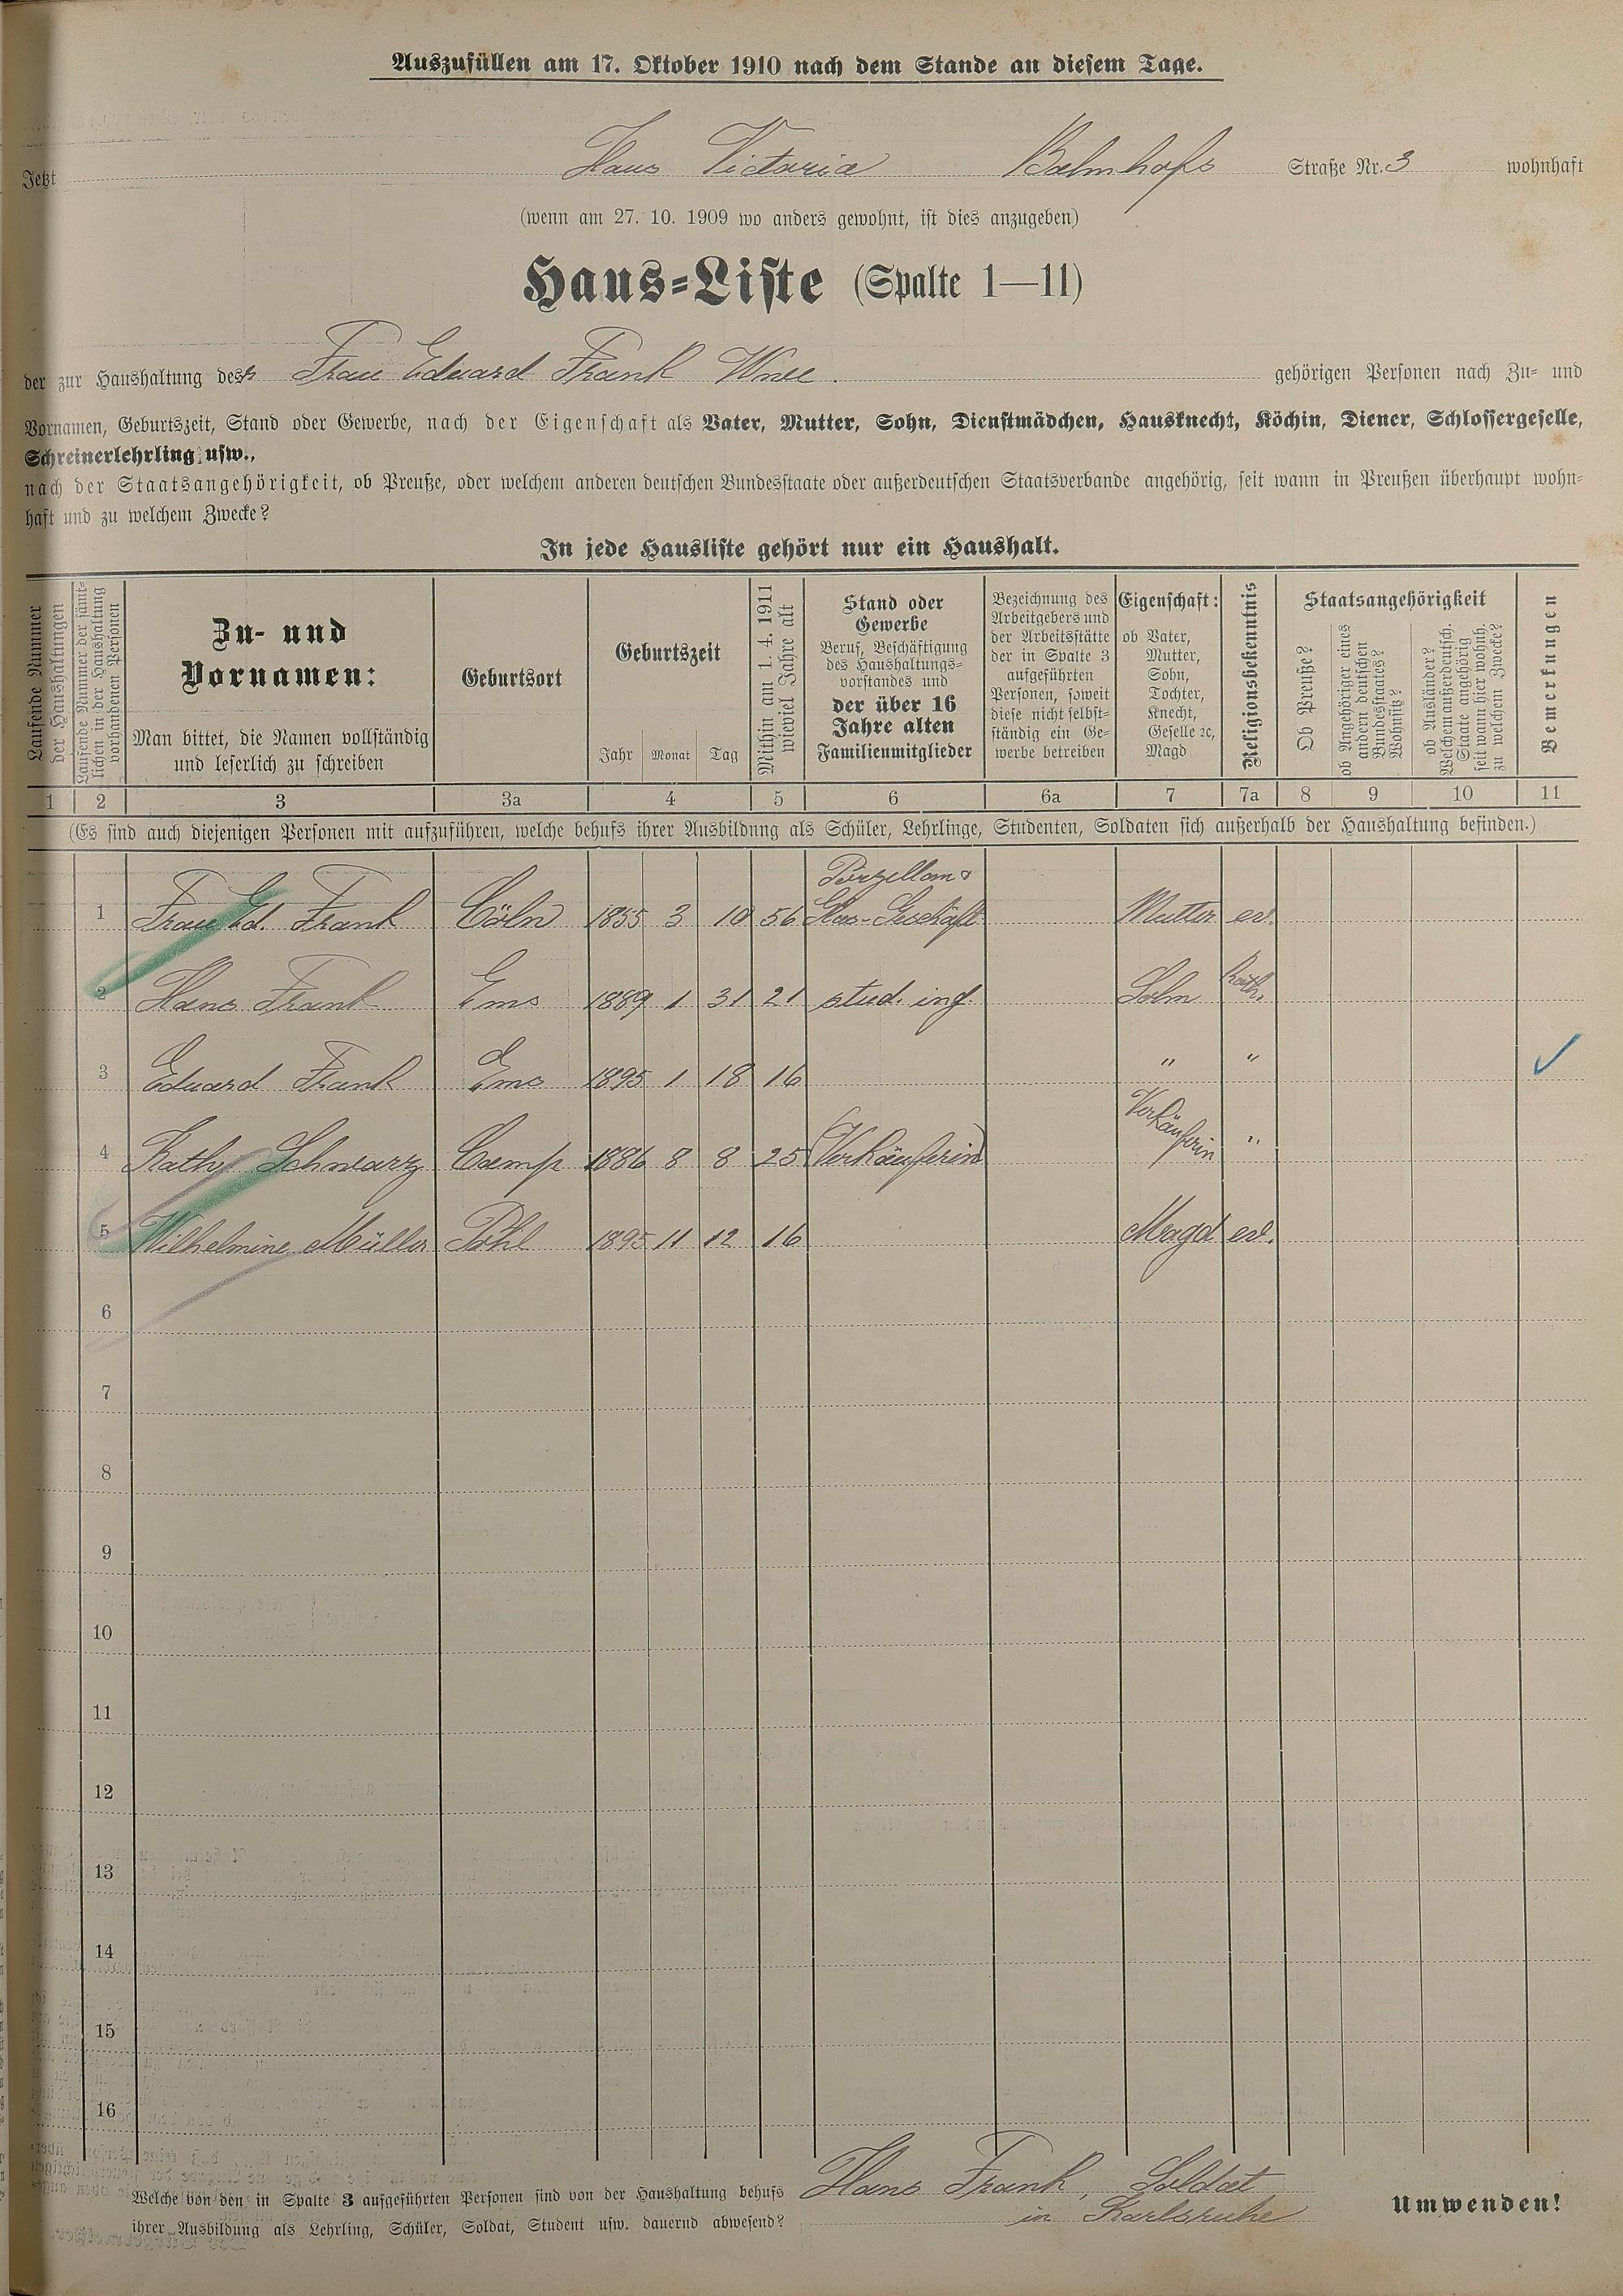 Auszufüllen am 17. Oktober 1910 nach dem Stande an diesem Tage.
Jetzt Haus Victoria Bahnhofs Straße Nr. 3 wohnhaft
(wenn am 27. 10. 1909 wo anders gewohnt, ist dies anzugeben)
Haus-Liste (Spalte 1—11)
der zur Haushaltung des r Frau Eduard Frank Wwe. gehörigen Personen nach Zu- und
Vornamen, Geburtszeit, Stand oder Gewerbe, nach der Eigenschaft als Vater, Mutter, Sohn, Dienstmädchen, Hausknecht, Köchin, Diener, Schlossergeselle,
Schreinerlehrling usw.,
nach der Staatsangehörigkeit, ob Preuße, oder welchem anderen deutschen Bundesstaate oder außerdeutschen Staatsverbande angehörig, seit wann in Preußen überhaupt wohn-
haft und zu welchem Zwecke?
In jede Hausliste gehört nur ein Haushalt.
Laufende Nummer
der Haushaltungen
Laufende Nummer der sämt-
lichen in der Haushaltung
vorhandenen Personen
Zu- und
Vornamen:
Man bittet, die Namen vollständig
und leserlich zu schreiben
Geburtsort
Geburtszeit
Jahr Monat Tag
Mithin am 1. 4. 1911
wieviel Jahre alt
Stand oder
Gewerbe
Beruf, Beschäftigung
des Haushaltungs-
vorstandes und
der über 16
Jahre alten
Familienmitglieder
Bezeichnung des
Arbeitgebers und
der Arbeitsstätte
der in Spalte 3
aufgeführten
Personen, soweit
diese nicht selbst-
ständig ein Ge-
werbe betreiben
Eigenschaft:
ob Vater,
Mutter,
Sohn,
Tochter,
Knecht,
Geselle ꝛc,
Magd
Religionsbekenntnis
Staatsangehörigkeit
Ob Preuße?
ob Angehöriger eines
andern deutschen
Bundesstaates?
Wohnsitz?
ob Ausländer?
Welchem außerdeutsch.
Staate angehörig
seit wann hier wohnh.
zu welchem Zwecke?
Bemerkungen
1 2 3 3a 4 5 6 6a 7 7a 8 9 10 11
(Es sind auch diejenigen Personen mit aufzuführen, welche behufs ihrer Ausbildung als Schüler, Lehrlinge, Studenten, Soldaten sich außerhalb der Haushaltung befinden.)
Porzellan &
1 Frau Ed. Frank Cöln 1855 3 10 56 Glas-Geschäft Mutter ev.
2 Hans Frank Ems 1889 1 31 21 stud. ing. Sohn kath.
3 Eduard Frank Ems 1895 1 18 16 " "
4 Kath. Schwarz Camp 1886 8 8 25 Verkäuferin Verkäuferin "
5 Wilhelmine Müller Pohl 1895 11 12 16 Magd ev.
6
7
8
9
10
11
12
13
14
15
16
Welche von den in Spalte 3 aufgeführten Personen sind von der Haushaltung behufs
ihrer Ausbildung als Lehrling, Schüler, Soldat, Student usw. dauernd abwesend?
Hans Frank, Soldat
in Karlsruhe
Umwenden!